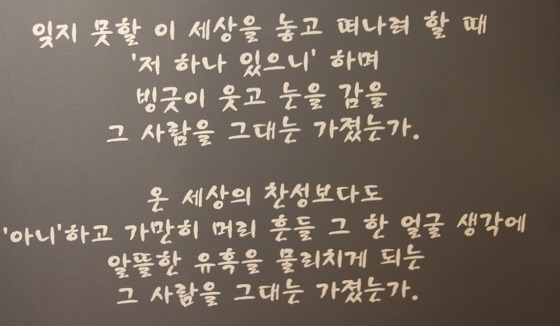 잊지 못할 이 세상을 놓고 떠나려 할 때
'저 하나 있으니' 하며
빙긋이 웃고 눈을 감을
그 사람을 그대는 가졌는가.
온 세상의 찬성보다도
'아니'하고 가만히 머리 흔들 그 한 얼굴 생각에
알뜰한 유혹을 물리치게 되는
그 사람을 그대는 가졌는가.